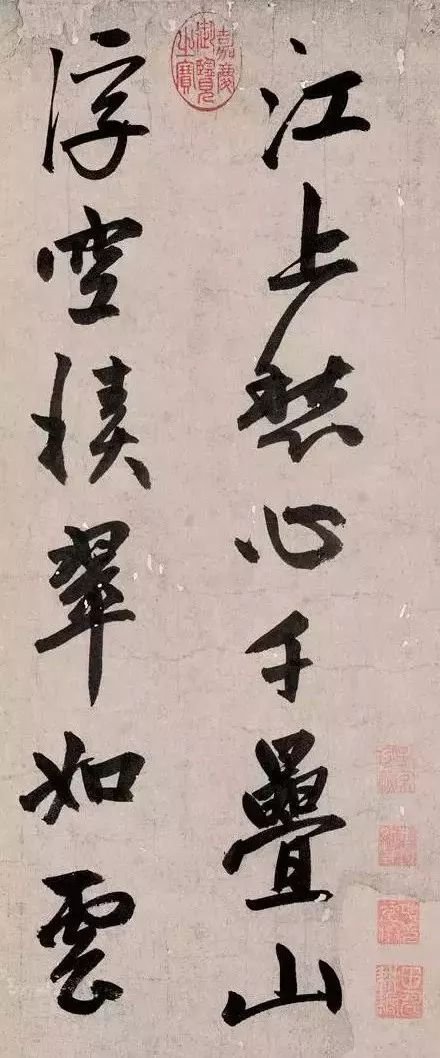 江上愁心千疊山
浮空積翠如雲
嘉慶御覽之寶